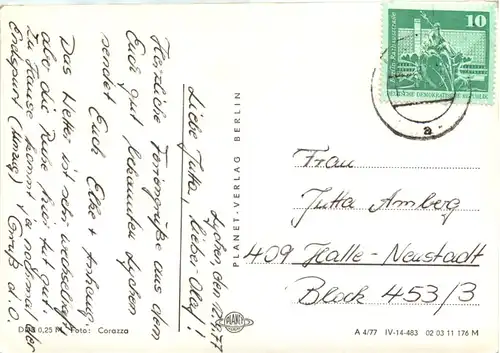 Lychen, den 2.9.77
Liebe Jutta, lieber Olaf!
Herzliche Feriengrüße aus dem
Euch gut bekannten Lychen
sendet Euch Elke + Anhang.
Das Wetter ist sehr wechselhaft
aber die Ruhe hier tut gut.
Zu Hause kommt ja nochmal der
Endspurt (Umzug) Gruß d. O.
DDR 0,25 M Foto: Corazza
PLANET-VERLAG BERLIN
PLANET
10
DEUTSCHE DEMOKRATISCHE REPUBLIK
a
Frau
Jutta Amberg
409 Halle-Neustadt
Block 453/3
A 4/77 IV-14-483 02 03 11 176 M